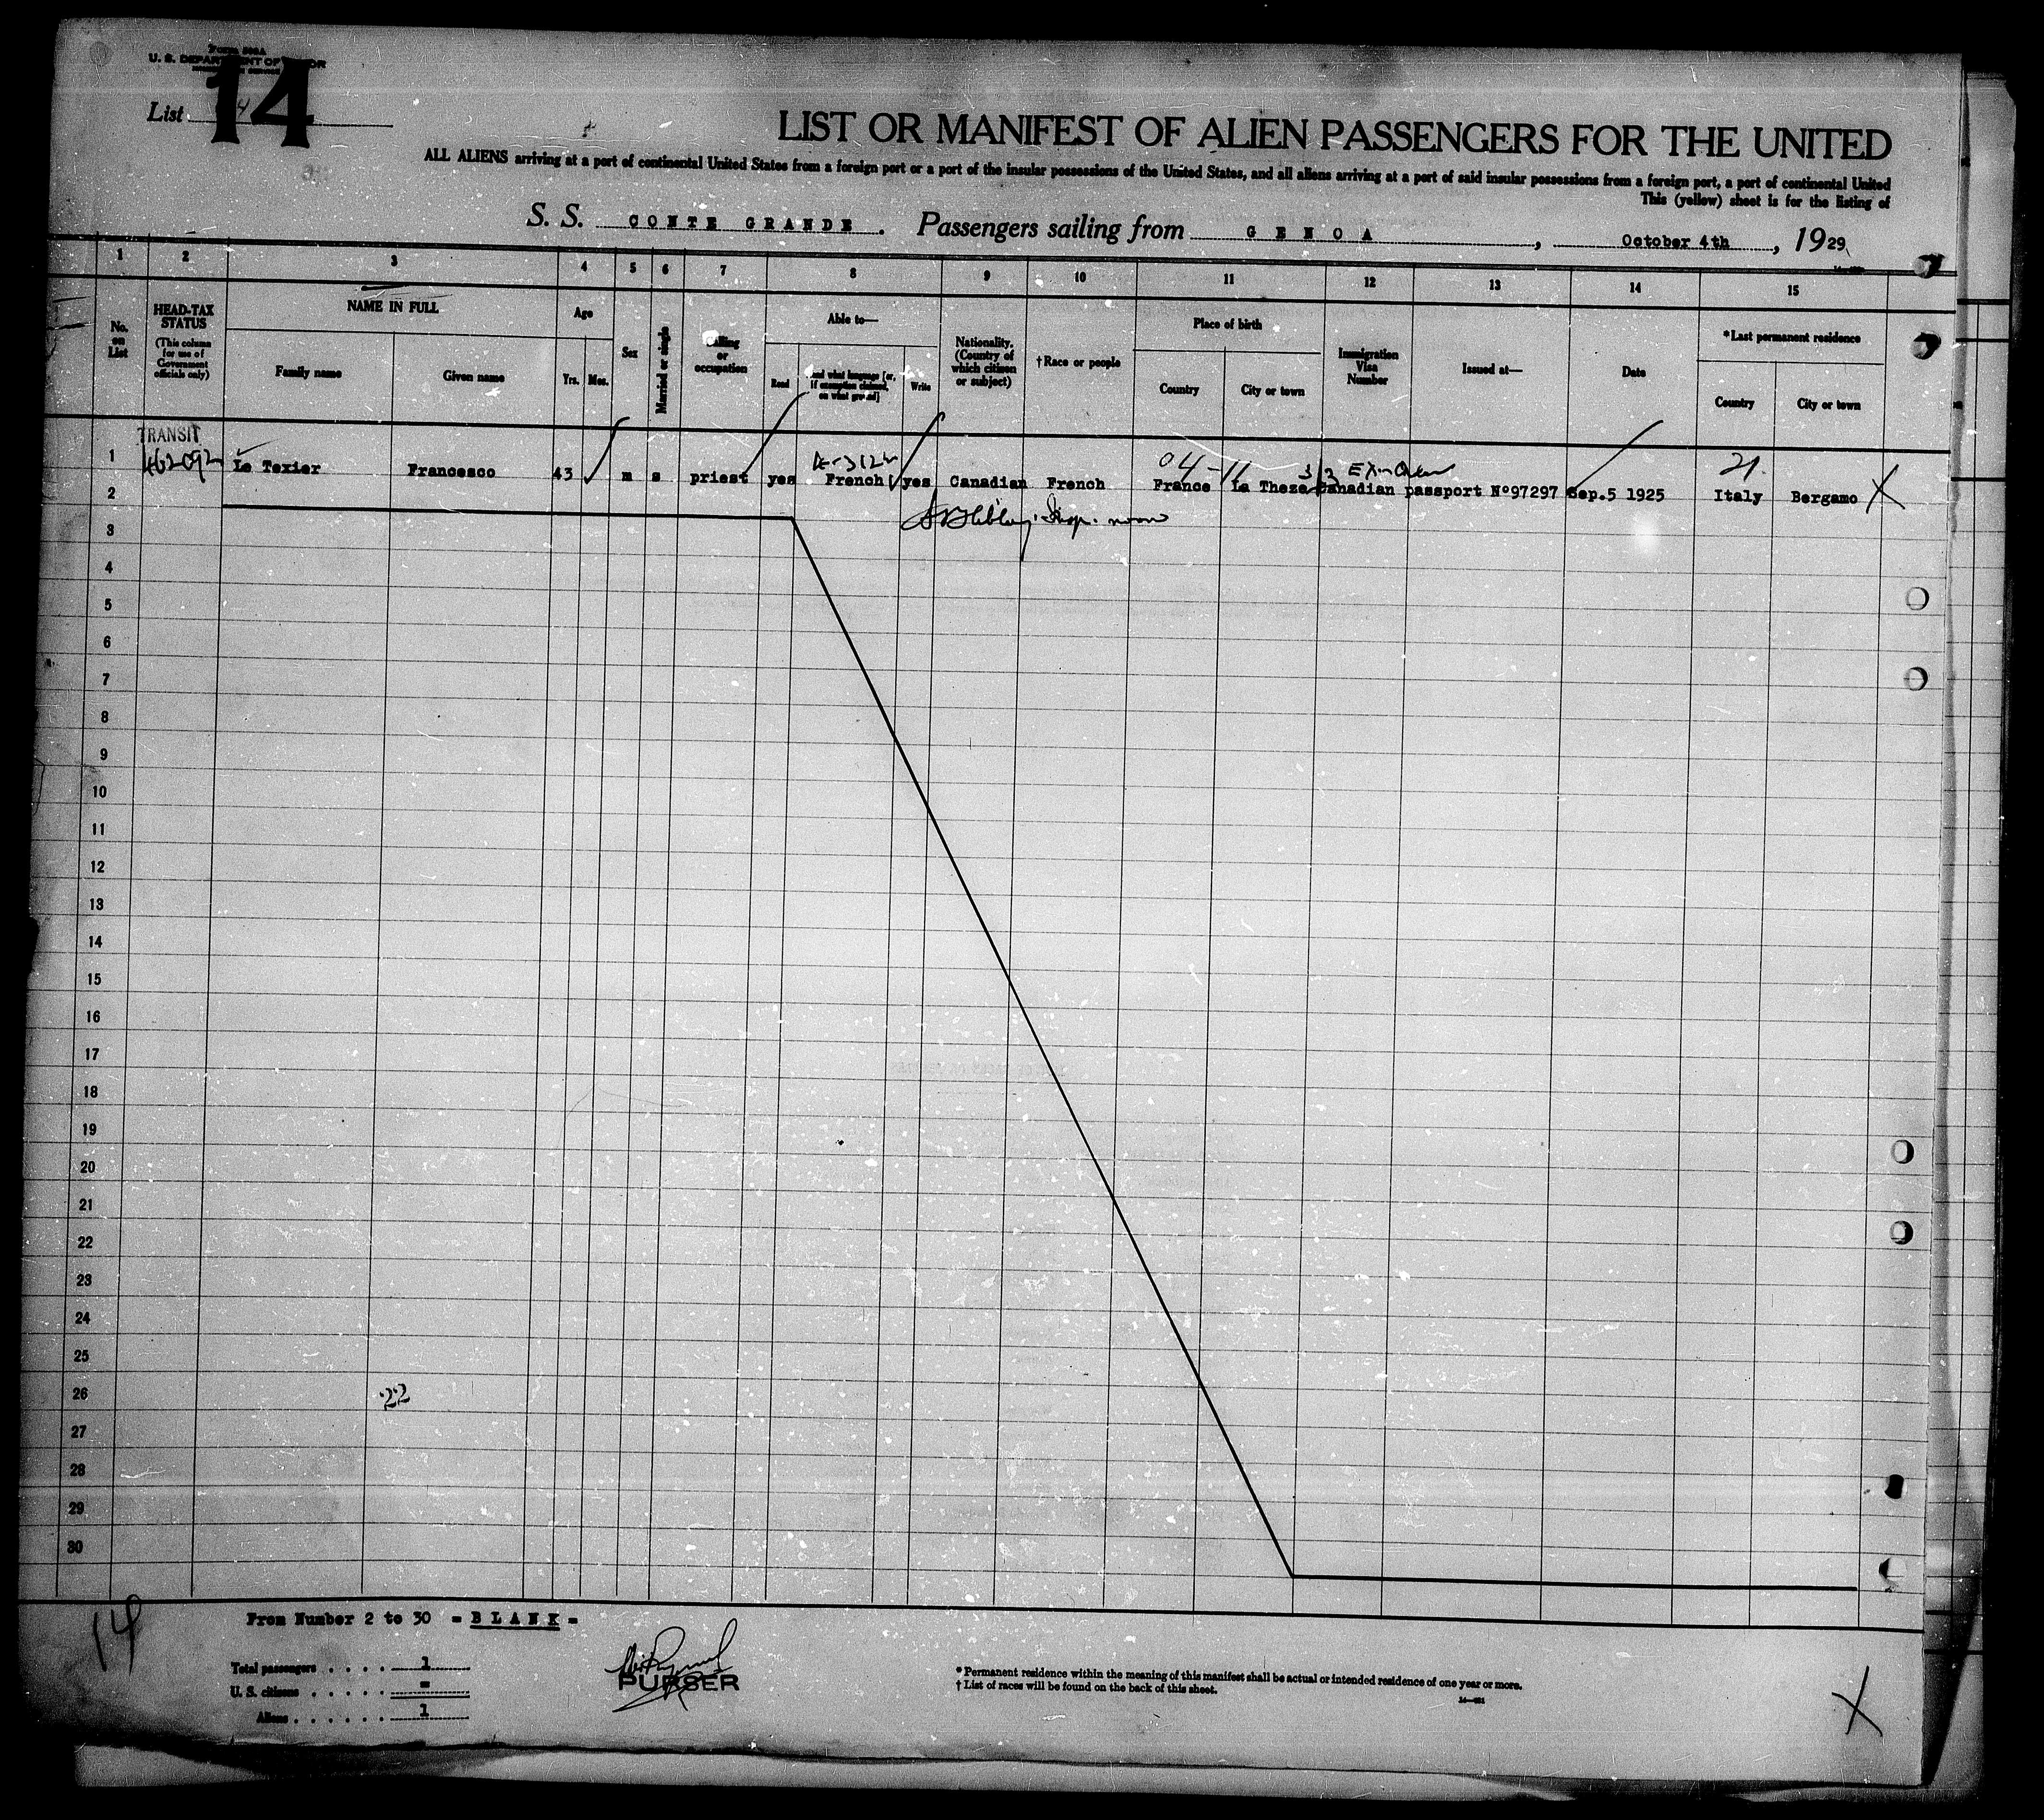 Form 500A
U. S. DEPARTMENT OF LABOR
List 14
LIST OR MANIFEST OF ALIEN PASSENGERS FOR THE UNITED
ALL ALIENS arriving at a port of continental United States from a foreign port or a port of the insular possessions of the United States, and all aliens arriving at a port of said insular possessions from a foreign port, a port of continental United
This (yellow) sheet is for the listing of
S. S. CONTE GRANDE . Passengers sailing from GENOA , October 4th , 1929
1 2 3 4 5 6 7 8 9 10 11 12 13 14 15
No. on List
HEAD-TAX STATUS (This column for use of Government officials only)
NAME IN FULL
Family name
Given name
Age
Yrs. Mos.
Sex
Married or single
Calling or occupation
Able to—
Read
and what language [or, if exemption claimed, on what ground]
Write
Nationality. (Country of which citizen or subject)
†Race or people
Place of birth
Country
City or town
Immigration Visa Number
Issued at—
Date
*Last permanent residence
Country
City or town
TRANSIT
462092
04-11
21
1 Le Texier Francesco 43 m s priest yes French yes Canadian French France La Theze Canadian passport Nº97297 Sep.5 1925 Italy Bergamo X
2
3
4
5
6
7
8
9
10
11
12
13
14
15
16
17
18
19
20
21
22
23
24
25
26
22
27
28
29
30
14
From Number 2 to 30 = BLANK =
Total passengers . . . . 1
U. S. citizens . . . . . =
Aliens . . . . . . 1
PURSER
* Permanent residence within the meaning of this manifest shall be actual or intended residence of one year or more.
† List of races will be found on the back of this sheet.
X